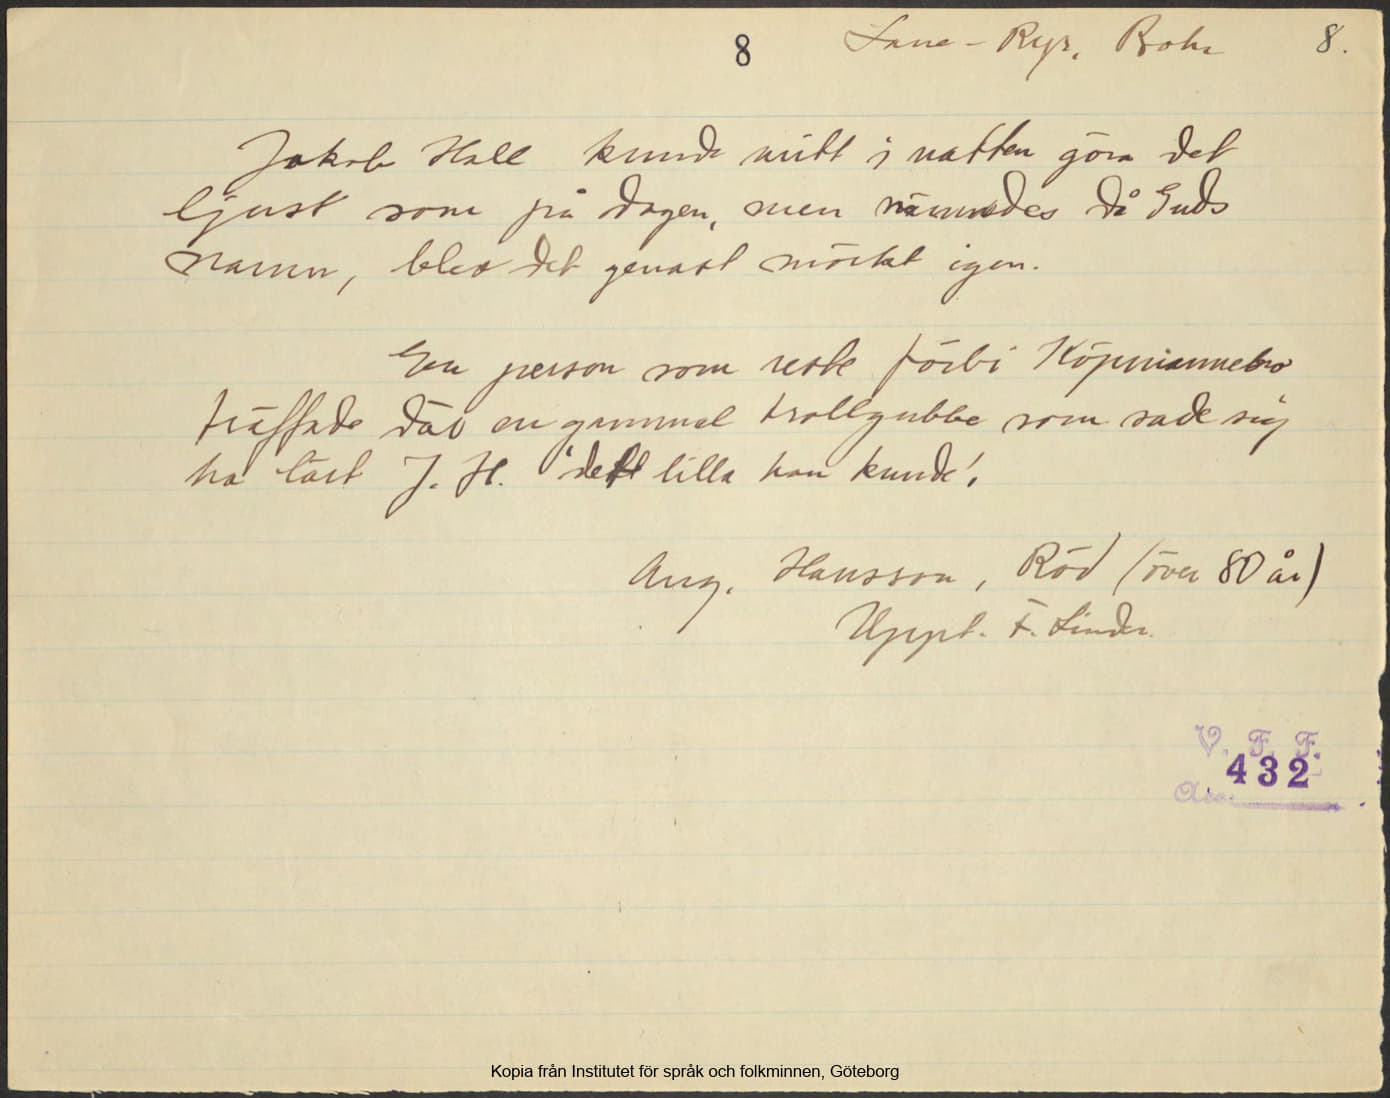 8 Lane-Ryr, Bohs 8.
Jakob Hall kunde mitt i natten göra det
ljust som på dagen, men nämndes då Guds
namn, blev det genast mörkt igen.
En person som reste förbi Köpmannebro
träffade där en gammal trollgubbe som sade sig
ha lärt J. H. 'det lilla han kunde'.
Aug. Hansson, Röd (över 80 år)
Uppt. F. Linder.
V. F. F.
432
Acc.
Kopia från Institutet för språk och folkminnen, Göteborg